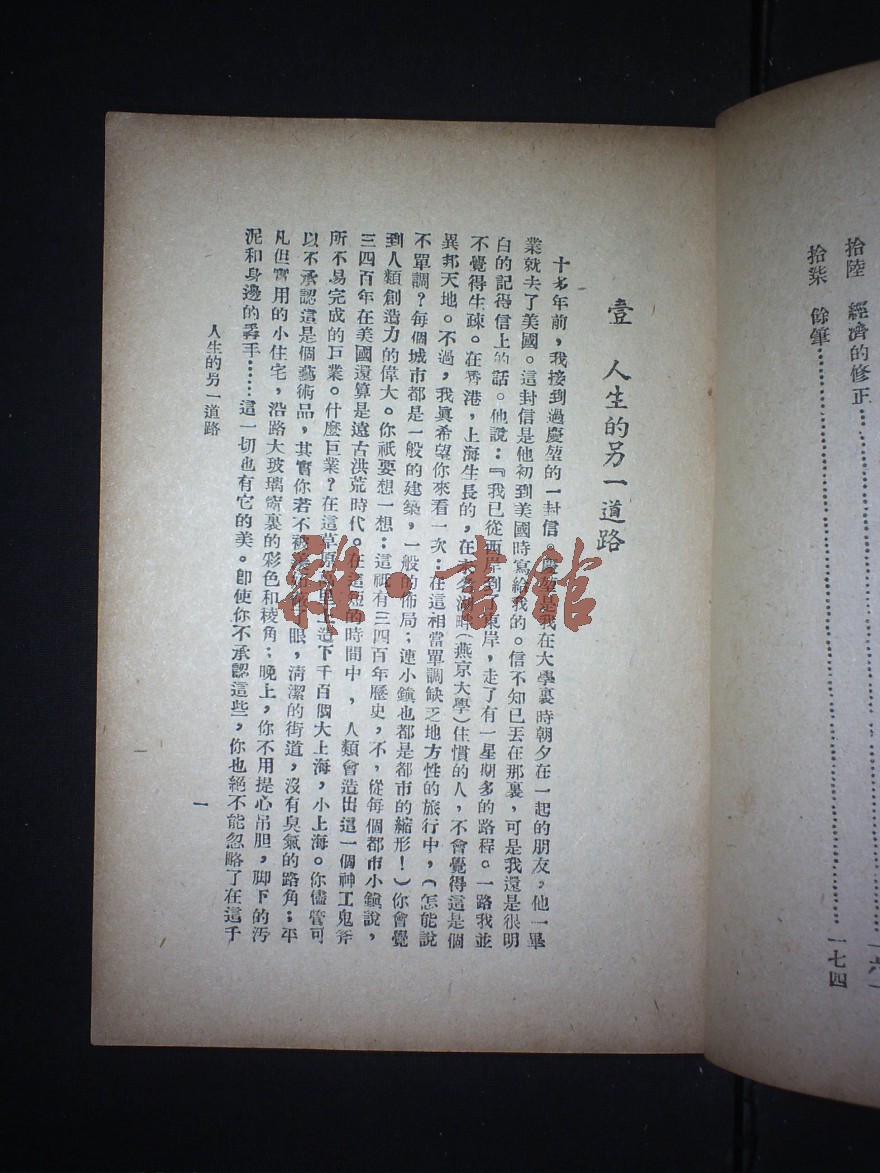 拾陸　經濟的修正……………………一六一
拾柒　餘筆……………………一七四
壹　人生的另一道路
十多年前，我接到過慶堃的一封信。慶堃是我在大學裏時朝夕在一起的朋友，他一畢
業就去了美國。這封信是他初到美國時寫給我的。信不知已丟在那裏，可是我還是很明
白的記得信上的話。他說：『我已從西岸到了東岸，走了有一星期多的路程。一路我並
不覺得生疎。在香港，上海生長的，在未名湖畔（燕京大學）住慣的人，不會覺得這是個
異邦天地。不過，我眞希望你來看一次：在這相當單調缺乏地方性的旅行中，（怎能說
不單調？每個城市都是一般的建築，一般的佈局；連小鎭也都是都市的縮形！）你會覺
到人類創造力的偉大。你祇要想一想：這祇有三四百年歷史，不，從每個都市小鎭說，
三四百年在美國還算是遠古洪荒時代。在這短的時間中，人類會造出這一個神工鬼斧
所不易完成的巨業。什麼巨業？在這草原 造下千百個大上海，小上海。你儘管可
以不承認這是個藝術品，其實你若不被 眼，清潔的街道，沒有臭氣的路角；平
凡但實用的小住宅，沿路大玻璃窗裏的彩色和稜角；晚上，你不用提心吊胆，脚下的汚
泥和身邊的扒手……這一切也有它的美。卽使你不承認這些，你也絕不能忽略了在這千
人生的另一道路
一
雜·書館